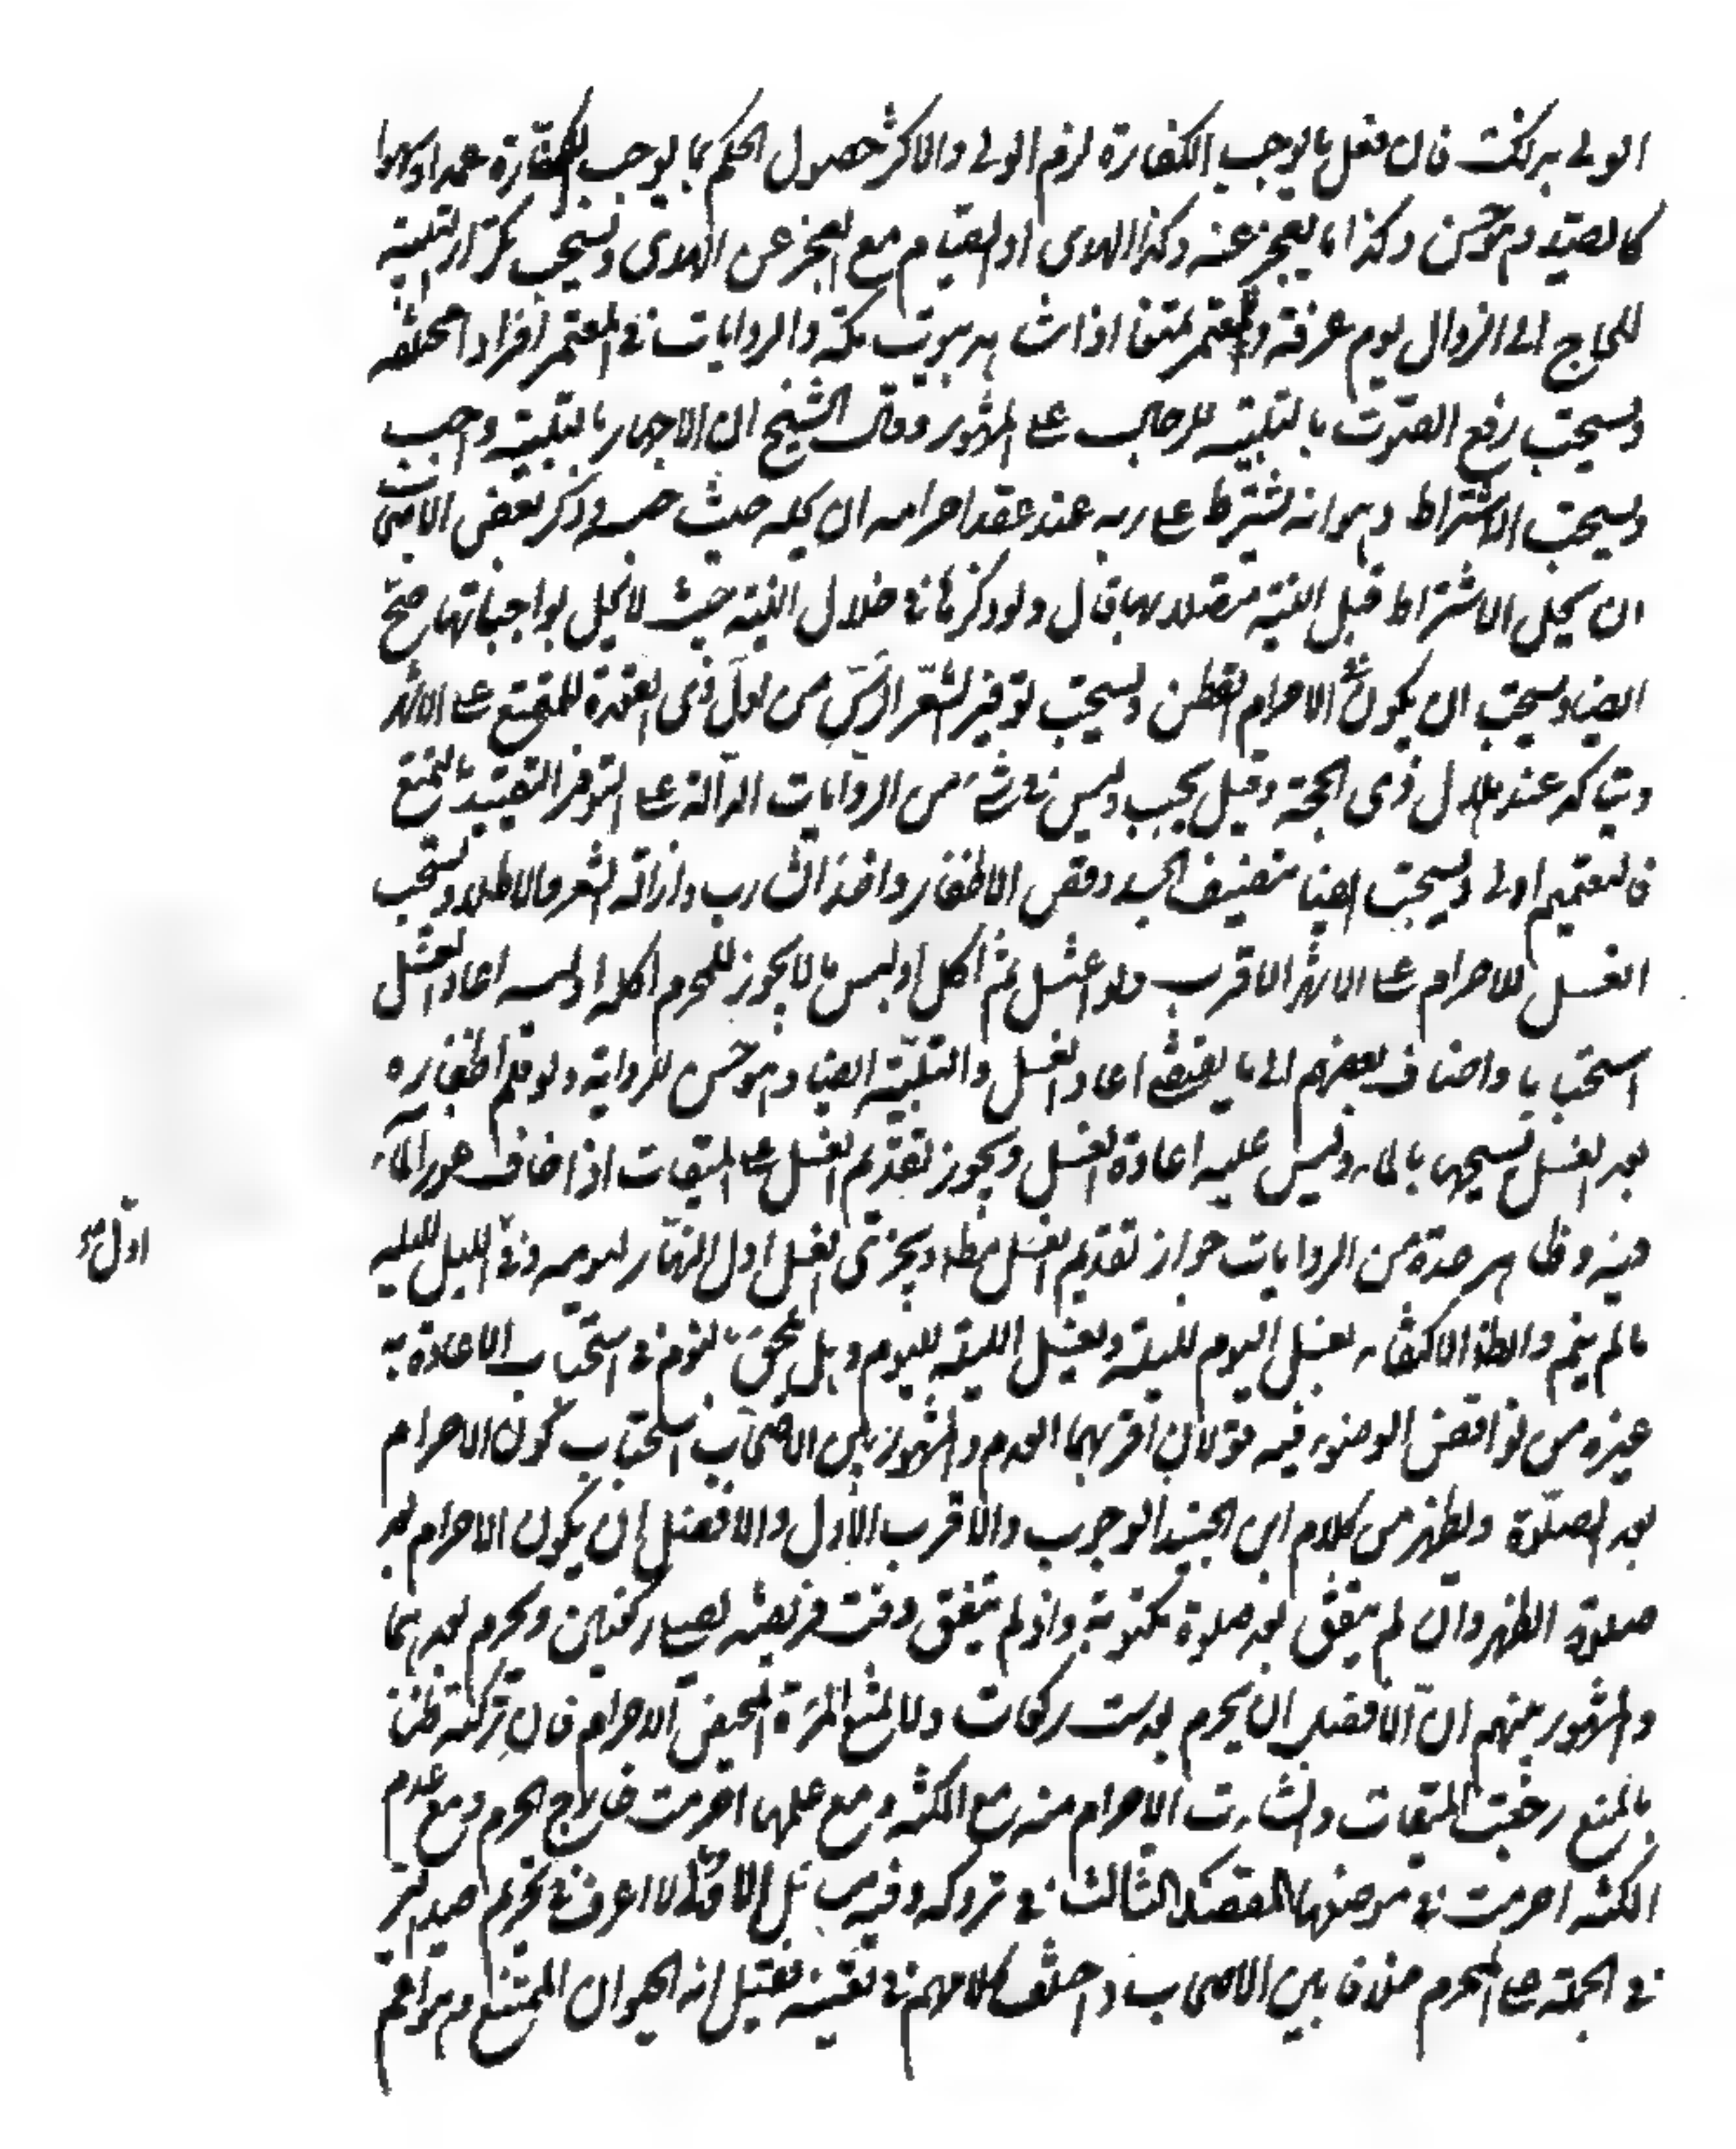 الولى بريكت فان فعل ما يوجب الكفارة لزم الولى والاكثر حصول الحكم بما يوجب الكفارة عمدا وسهوا
كالصيد وهو حسن وكذا ما يعجز عنه وكذا الهدى او الصيام مع العجز عن الهدى ويستحب تكرار التلبية
للحاج الى الزوال يوم عرفة وللمعتمر متمتعا اذا شاهد بيوت مكة والروايات فى المعتمر افرادا مختلفه
ويستحب رفع الصوت بالتلبية للرجال على المشهور وقال الشيخ ان الاجهار بالتلبية واجب
ويستحب الاشتراط وهو انه يشترط على ربه عند عقد احرامه ان يحله حيث حبسه وذكر بعض الاصحاب
ان محل الاشتراط قبل النية متصلا بها قال ولو ذكرها فى خلال النية حيث لا يخل بواجباتها صح
ايضا ويستحب ان يكون الاحرام القطن ويستحب توفير الشعر الراس من اول ذى القعدة للمتمتع على الاشهر
ويتاكد عند هلال ذى الحجة وقيل يجب وليس فى شئ من الروايات الدالة على التوفير التقييد بالتمتع
فالتعميم اولى ويستحب ايضا تنظيف الجسد وقص الاظفار واخذ الشارب وازالة الشعر والاطلاء ويستحب
الغسل للاحرام على الاشهر الاقرب ولو اغتسل ثم اكل او لبس ما لا يجوز للمحرم اكله او لبسه اعاد الغسل
استحبابا واضاف بعضهم الى ما يقتضى اعادة الغسل والتلبية ايضا وهو حسن للرواية ولو قلم اظفاره
بعد الغسل يمسحها بالماء وليس عليه اعادة الغسل ويجوز تقديم الغسل على الميقات اذا خاف عوز الماء
فيه وظاهر عدة من الروايات جواز تقديم الغسل مطلقا ويجزى الغسل اول النهار ليومه وفى الليل لليله
اول
ما لم ينم والظاهر الاكتفاء بغسل اليوم لليلة وبغسل الليلة لليوم وهل يلحق بالنوم فى استحباب الاعادة به
غيره من نواقض الوضوء فيه قولان اقربهما العدم والمشهور بين الاصحاب استحباب كون الاحرام
بعد الصلوة ويظهر من كلام ابن الجنيد الوجوب والاقرب الاول والافضل ان يكون الاحرام بعد
صلوة الظهر وان لم يتفق بعد صلوة مكتوبة واذ لم يتفق وقت فريضه يصلى ركعتين ويحرم بعدهما
والمشهور بينهم ان الافضل ان يحرم بعد ست ركعات ولا يمنع المرءة الحيض الاحرام فان تركته ظنا
بالمنع رجعت الميقات وانشاءت الاحرام منه مع المكنه ومع عدمها احرمت خارج الحرم ومع عدم
المكنه احرمت فى موضعها المقصد الثالث فى تروكه وفيه مسائل الاولى لا اعرف فى تحريم صيد البر
فى الجملة على المحرم خلافا بين الاصحاب واختلف كلامهم فى تفسيره فقيل انه الحيوان الممتنع وهو اعم